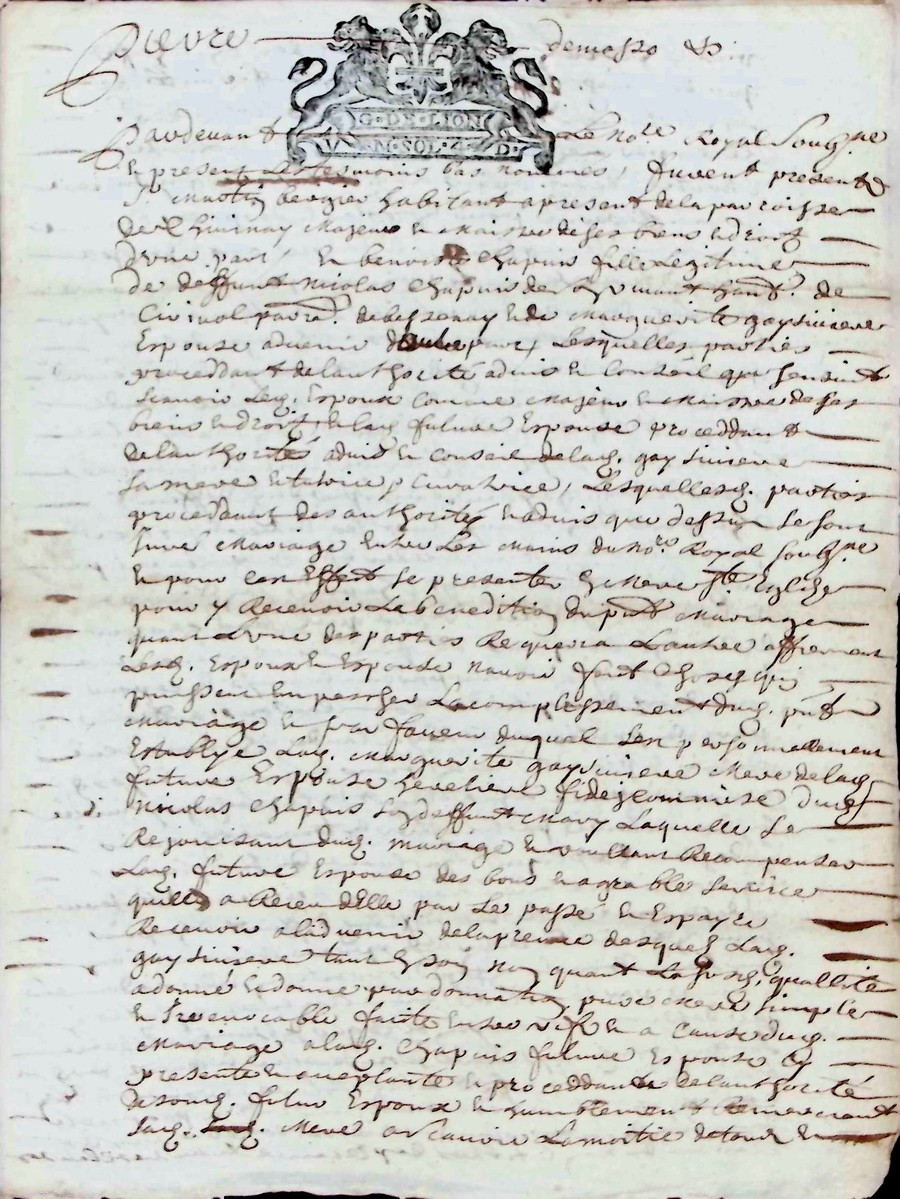 Pierre demasso &
G·D·LION
V·N·SOL·4·D·
Pardevant Le no.re Royal Soug.ne
En present Les tesmoins bas nommes, furent present
S.r Martin bergier habitant a present de la parroisse
de Majeur En Maistre de ses biens Et droit
D'vne part, En benoiste Chapuis fille Legitime
De deffunt Nicolas Chapuis de vivant hant.t de
parr.e de bessenay Et de Marguerite gaysiniere
Espouse advenir d'autre part, Lesquelles parties
proceddant de Lauthorité advis Et Conseil que sensuit
scavoir Led. Espoux Comme Majeur Et Maistre de ses
biens Et droit, Et lad. future Espouse proceddant
de Lauthorité advis Et Conseil de lad. gaysiniere
sa mere Et tutrice, Curatrice, Lesquelles d. parties
procedant des authorités Et advis que dessus se sont
Juré Mariage Entre Les Mains du No.re Royal Soubz.ne
En pour cet Effect se presenter En Mere S.te Eglize
pour y Recevoir La benediction du p.nt Mariage
quand L'vne des parties Requerra L'autre affirmant
Lesd. Espoux Et Espouse navoir fait Chose qui
puissent Empescher Lacomplissement dud. p.nt
Mariage En par faveur duquel sest personnellement
Establye Lad. Marguerite gaysiniere Mere de lad.
future Espouse heretiere fideicommise dud.
Nicolas Chapuis son deffunt Mary Laquelle se
Rejouissant dud. mariage En voullant Recompenser
Lad. future Espouse des bons Et agreable service
quelle a Receu d'Elle par Le passé Et Espere
Recevoir a Ladvenir de la preuve desquels Lad.
gaysiniere tant En son Nom quant La susd. quallité
a donné Et donne par donnation pure Et simple
En Irrevocable faite Entre vifs Et a Cause dud.
Mariage a lad. Chapuis future Espouse Cy
presente Et aceptante Et proceddant de Lauthorité
de sond. futur Espoux Et humblement Remerciant
sad. Mere a scavoir La moitié de tous Et